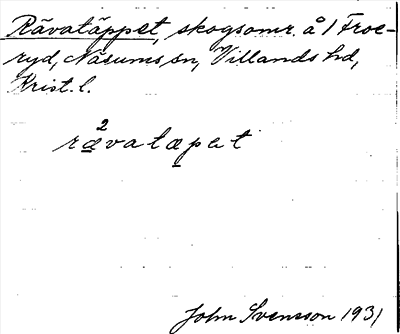 Rävatäppet, skogsomr. å 1 Froe-
ryd, Näsums sn, Villands hd,
Krist. l.
rä²vatäpet
John Svensson 1931